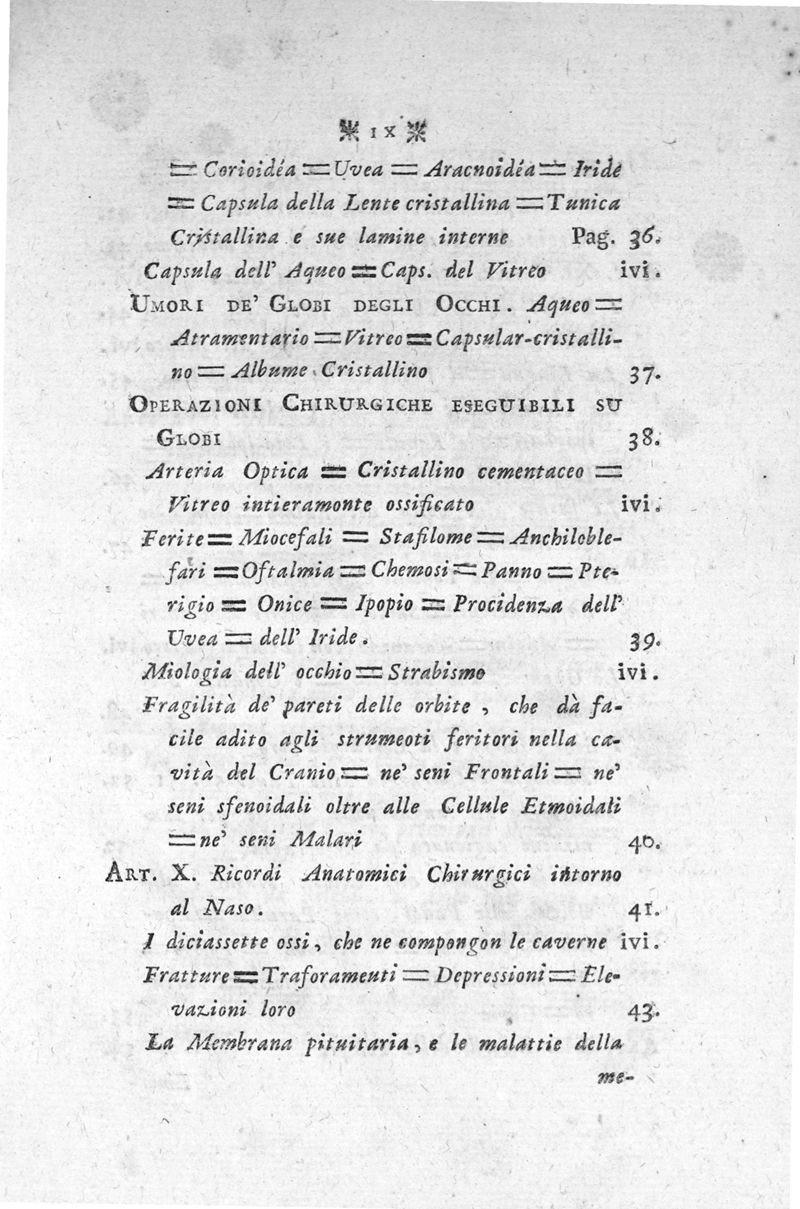 IX
= Corioidéa = Uvea = Aracnoidéa = Iride
= Capsula della Lente cristallina = Tunica
Cristallina e sue lamine interne Pag. 36.
Capsula dell' Aqueo = Caps. del Vitreo ivi.
UMORI DE' GLOBI DEGLI OCCHI. Aqueo =
Atramentario = Vitreo = Capsular-cristalli-
no = Albume Cristallino 37.
OPERAZIONI CHIRURGICHE ESEGUIBILI SU
GLOBI 38.
Arteria Optica = Cristallino cementaceo =
Vitreo intieramonte ossificato ivi.
Ferite = Miocefali = Stafilome = Anchiloble-
fari = Oftalmia = Chemosi = Panno = Pte-
rigio = Onice = Ipopio = Procidenza dell'
Uvea = dell' Iride. 39.
Miologia dell' occhio = Strabismo ivi.
Fragilità de' pareti delle orbite, che dà fa-
cile adito agli strumeoti feritori nella ca-
vità del Cranio = ne' seni Frontali = ne'
seni sfenoidali oltre alle Cellule Etmoidali
= ne' seni Malari 40.
ART. X. Ricordi Anatomici Chirurgici intorno
al Naso. 41.
I diciassette ossi, che ne compongon le caverne ivi.
Fratture = Traforamenti = Depressioni = Ele-
vazioni loro 43.
La Membrana pituitaria, e le malattie della
me-